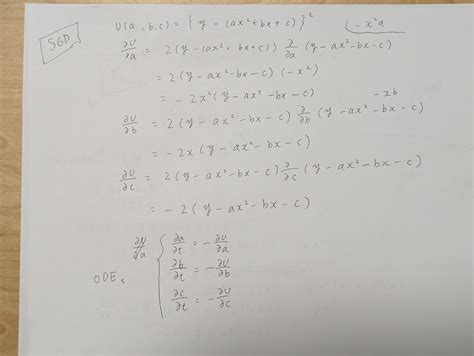 SGD
U(a,b,c) = { y - (ax² + bx + c) }²
-x²a
∂U/∂a = 2(y - (ax² + bx + c)) ∂/∂a (y - ax² - bx - c)
= 2(y - ax² - bx - c)(-x²)
= -2x²(y - ax² - bx - c)
-xb
∂U/∂b = 2(y - ax² - bx - c) ∂/∂b (y - ax² - bx - c)
= -2x(y - ax² - bx - c)
∂U/∂c = 2(y - ax² - bx - c) ∂/∂c (y - ax² - bx - c)
= -2(y - ax² - bx - c)
∂a/∂t = -∂U/∂a
ODEs
∂b/∂t = -∂U/∂b
∂c/∂t = -∂U/∂c